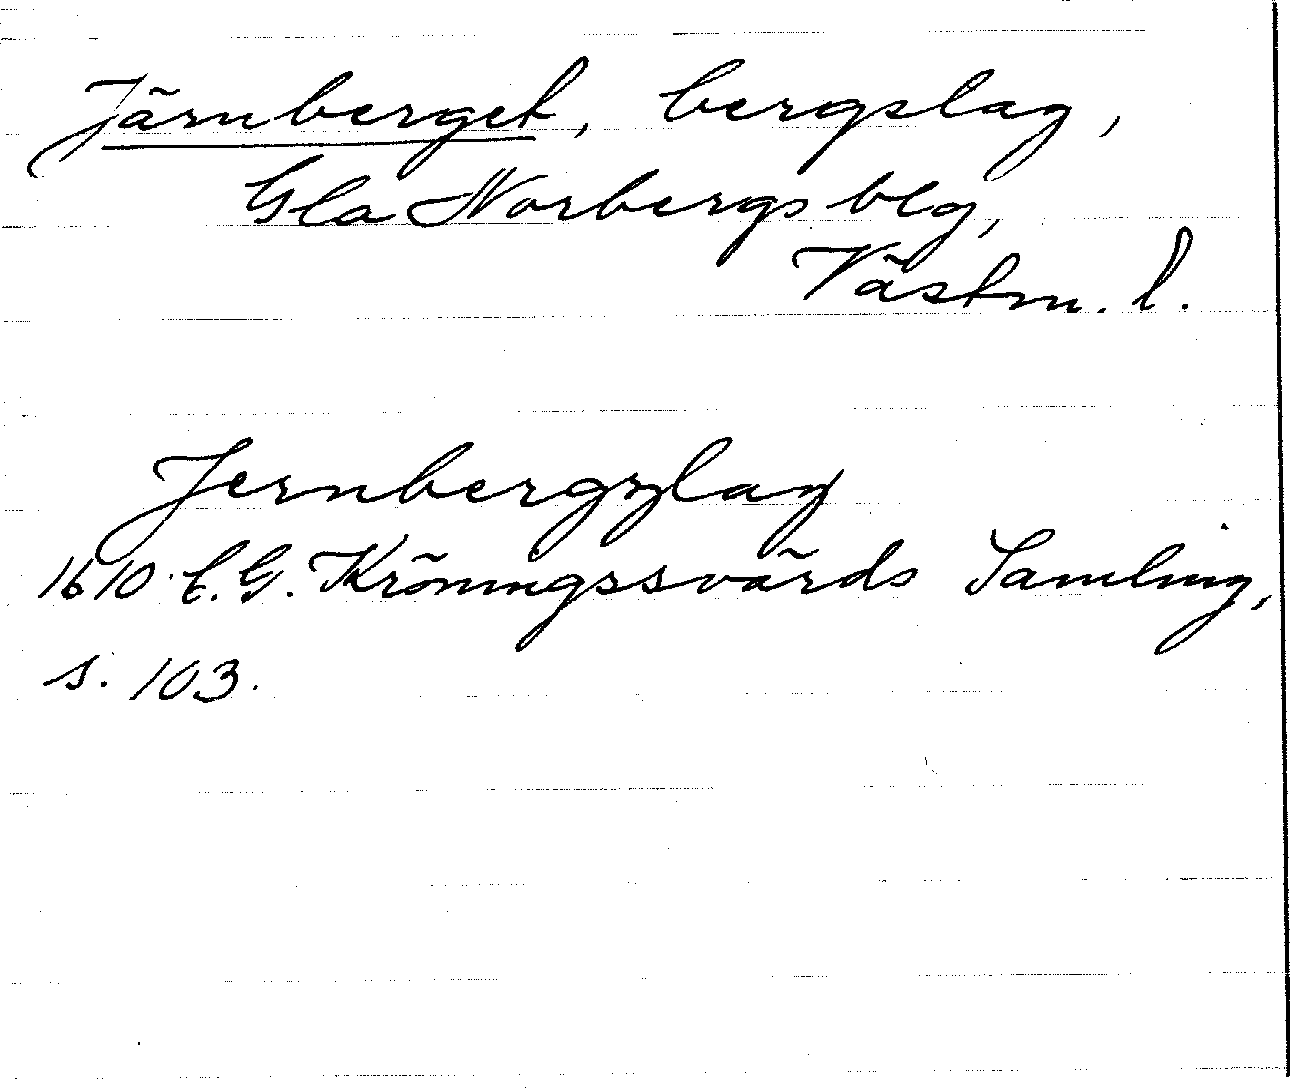 Järnberget, bergslag,
Gla Norbergs blg,
Västm. l.
Jernbergzlag
1610 C.G. Kröningssvärds Samling,
s. 103.